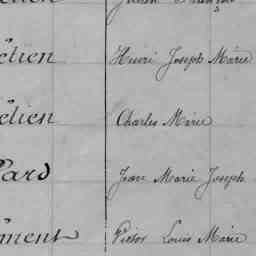 élien Henri Joseph Marie
élien Charles Marie
Pard Jean Marie Joseph
ment Victor Louis Marie